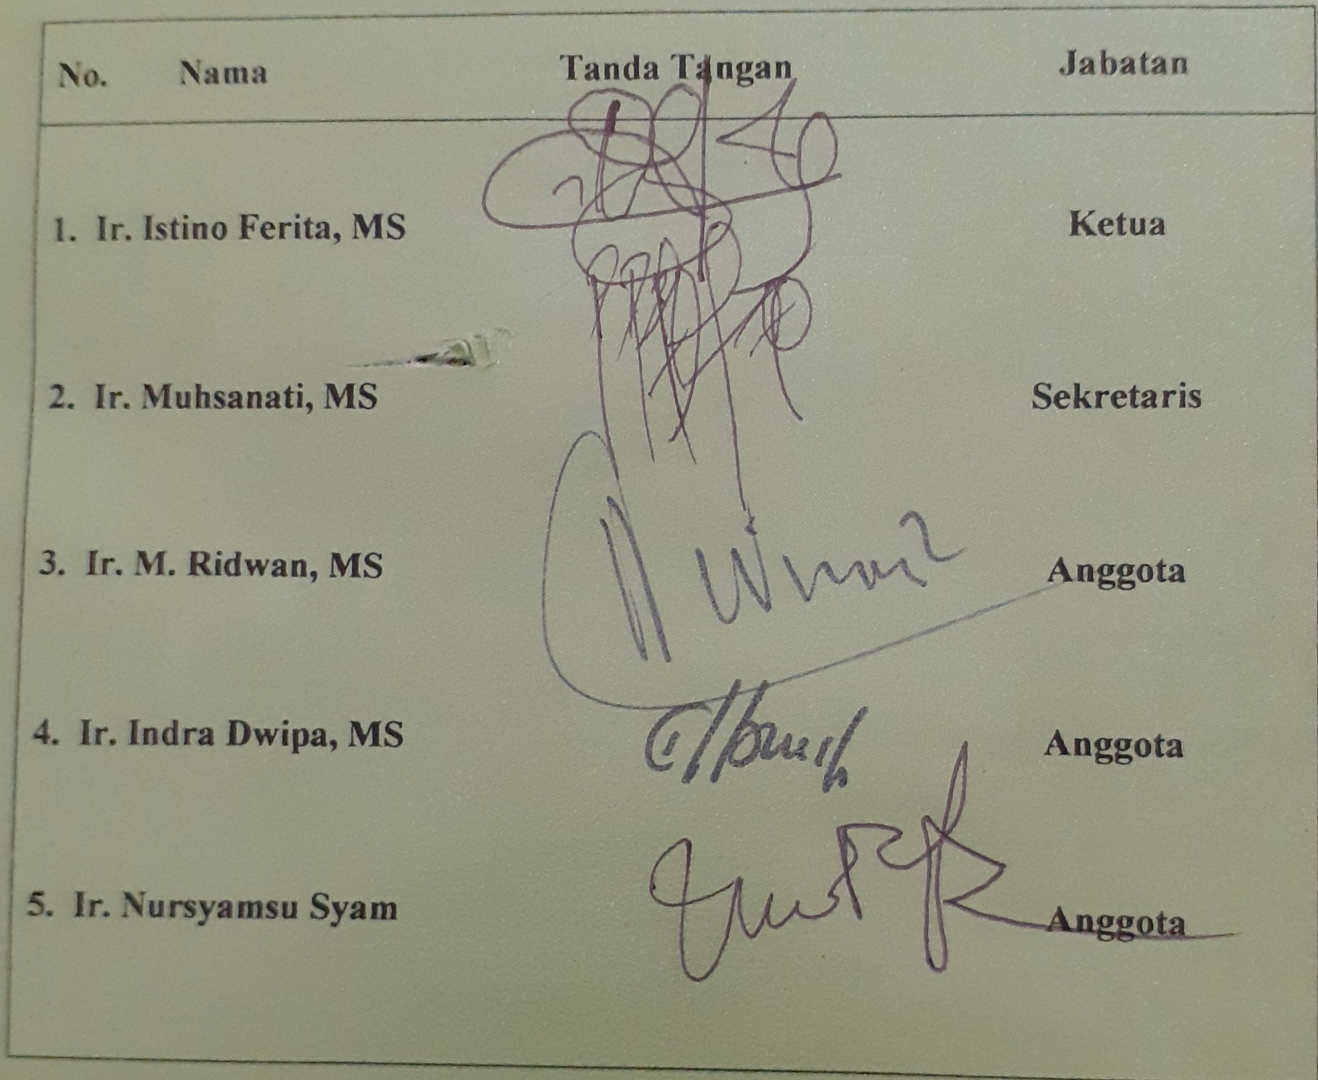 No. Nama Tanda Tangan Jabatan
1. Ir. Istino Ferita, MS Ketua
2. Ir. Muhsanati, MS Sekretaris
3. Ir. M. Ridwan, MS Anggota
4. Ir. Indra Dwipa, MS Anggota
5. Ir. Nursyamsu Syam Anggota